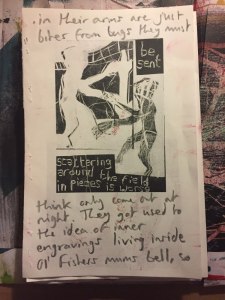 .in their arms are just
bites from bugs they must
be
sent
scattering
around the field
in pieces is worse
think only come out at
night. They got used to
the idea of inner
engravings living inside
Ol' Fishers mums bell, so